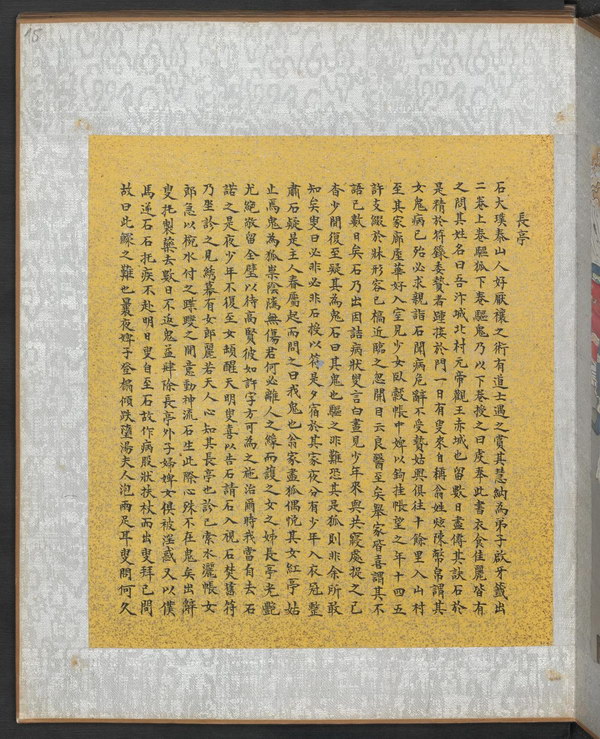 長亭
石大璞泰山人好厭禳之術有道士遇之賞其慧納為弟子啟牙籤出
二卷上卷驅狐下卷驅鬼乃以下卷授之曰虔奉此書衣食佳麗皆有
之問其姓名曰吾汴城北村元帝觀王赤城也留數日盡傳其訣石於
是精於符籙委贄者踵接於門一日有叟來自稱翁姓炫陳幣帛謂其
女鬼病已殆必求親詣石聞病危辭不受贄姑與俱往十餘里入山村
至其家廊座華好入室見少女臥縠帳中婢以鉤挂帳望之年十四五
許支綴於牀形容已槁近臨之忽開目云良醫至矣舉家皆喜謂其不
語已數日矣石乃出因詰病狀叟言白晝見少年來與共寢處捉之已
杳少間復至疑其為鬼石曰其鬼也驅之非難恐其是狐則非余所敢
知矣叟曰必非必非石授以符是夕宿於其家夜分有少年入衣冠整
肅石疑是主人眷屬起而問之曰我鬼也翁家盡狐偶悅其女紅亭姑
止焉鬼為狐祟陰騭無傷君何必離人之緣而護之女之姊長亭光艷
尤絕敬留全璧以待高賢彼如許字方可為之施治爾時我當自去石
諾之是夜少年不復至女頓醒天明叟喜以告石請石入視石焚舊符
乃坐診之見繡幕有女郎麗若天人心知其長亭也診已索水灑帳女
郎急以椀水付之蹀躞之間意動神流石生此際心殊不在鬼矣出辭
叟托製藥去數日不返鬼益肆除長亭外子婦婢女俱被淫惑又以僕
馬逆石石托疾不赴明日叟自至石故作病股狀扶杖而出叟拜已問
故曰此鰥之難也曩夜婢子登榻傾跌墮湯夫人泡兩足耳叟問何久